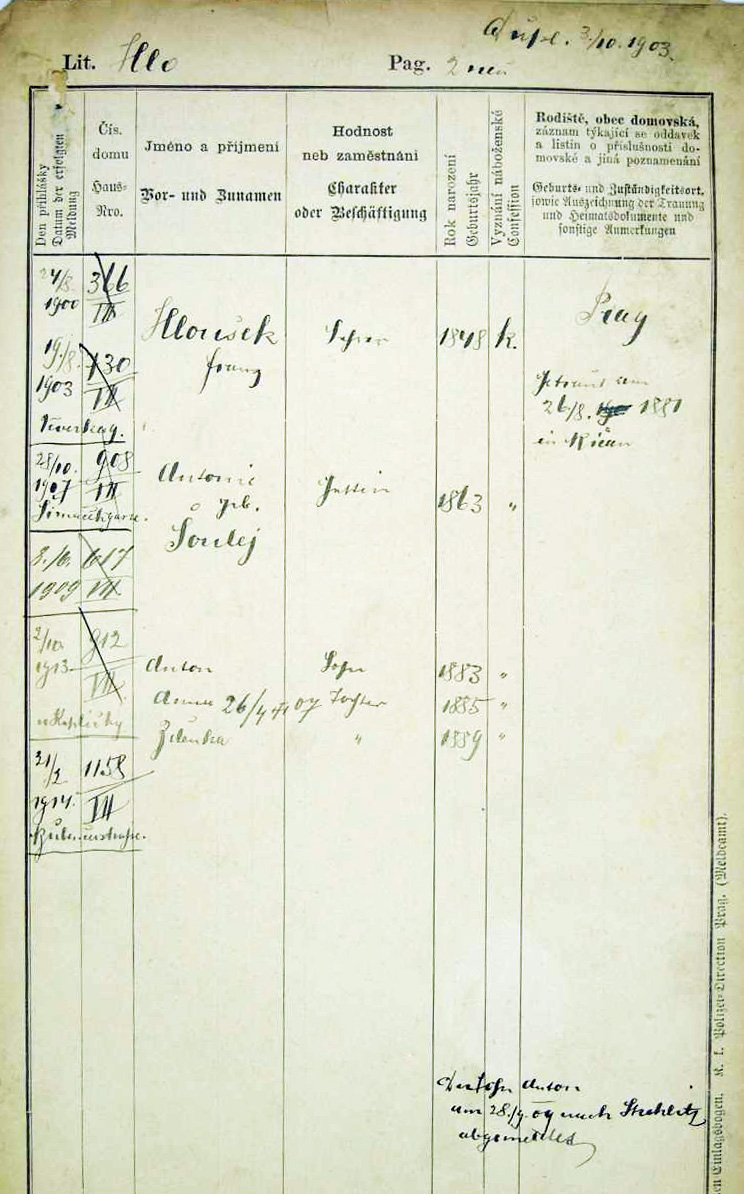 Dupl. 3/10. 1903.
Lit. Hlo Pag. 2 neu
Den přihlášky
Datum der erfolgten Meldung
Čís. domu
Haus-Nro.
Jméno a příjmení
Vor- und Zunamen
Hodnost
neb zaměstnání
Charakter
oder Beschäftigung
Rok narození
Geburtsjahr
Vyznání náboženské
Confession
Rodiště, obec domovská,
záznam týkající se oddavek
a listin o příslušnosti do-
movské a jiná poznamenání
Geburts- und Zuständigkeitsort,
sowie Auszeichnung der Trauung
und Heimatsdokumente und
sonstige Anmerkungen
24/8. 1900 366 III
19/8. 1903 730 VII
Hloušek
Franz
1848 k.
Prag
Getraut am
26/8. 1881
in Říčan
28/10. 1907 908 VII
Antonie
geb.
Šoulej
Gattin
1863 "
8./6. 1909 617 VII
2/10. 1913 812 VII
u Kapličky
Anton Sohn 1883 "
Anna 26/4 07 Tochter 1885 "
Zdenka " 1889 "
21/2 1914. 1158 VII
Der Sohn Anton
am 28./9. 09 nach Strehlitz
abgemeldet
en Einlagsbogen. K. k. Polizei-Direction Prag. (Meldeamt).